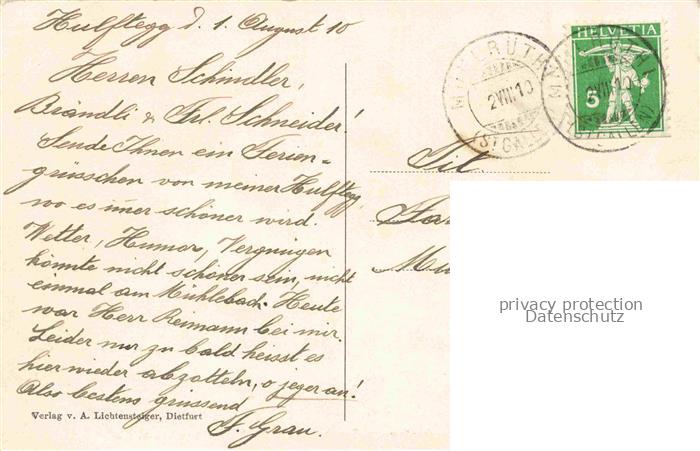 Hulftegg d. 1. August 10
Herren Schindler,
Brändli & Frl. Schneider!
Sende Ihnen ein Ferien-
grüsschen von meiner Hulftegg,
wo es imer schöner wird.
Wetter, Humor, Vergnügen
könnte nicht schöner sein, nicht
einmal am Mühlebach. Heute
war Herr Reimann bei mir.
Leider nur zu bald heisst es
hier wieder abzotteln, o jeger au!
Also bestens grüssend
F. Grau.
Verlag v. A. Lichtensteiger, Dietfurt
HELVETIA
5
2 VIII 10
(ST. GALLEN)
Tit.
privacy protection
Datenschutz